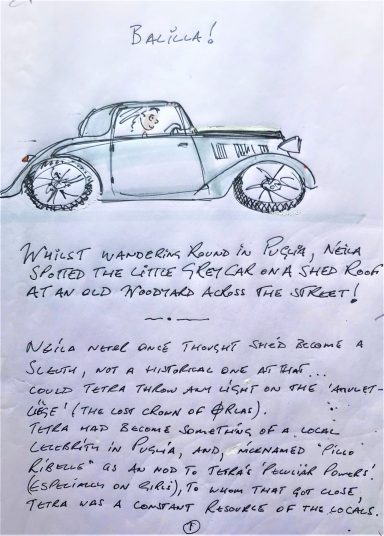 BALILLA!
WHILST WANDERING ROUND IN PUGLIA, NEILA
SPOTTED THE LITTLE GREY CAR ON A SHED ROOF
AT AN OLD WOODYARD ACROSS THE STREET!
NEILA NEVER ONCE THOUGHT SHE'D BECOME A
SLEUTH, NOT A HISTORICAL ONE AT THAT...
COULD TETRA THROW ANY LIGHT ON THE 'AMULET-
LIÈGE' (THE LOST CROWN OF ØRLAS).
TETRA HAD BECOME SOMETHING OF A LOCAL
CELEBRITY IN PUGLIA, AND, NICKNAMED "PILLO
RIBELLE" AS AN NOD TO TETRA'S 'PECULIAR POWERS'.
(ESPECIALLY ON GIRLS), TO WHOM THAT GOT CLOSE,
TETRA WAS A CONSTANT RESOURCE OF THE LOCALS.
1